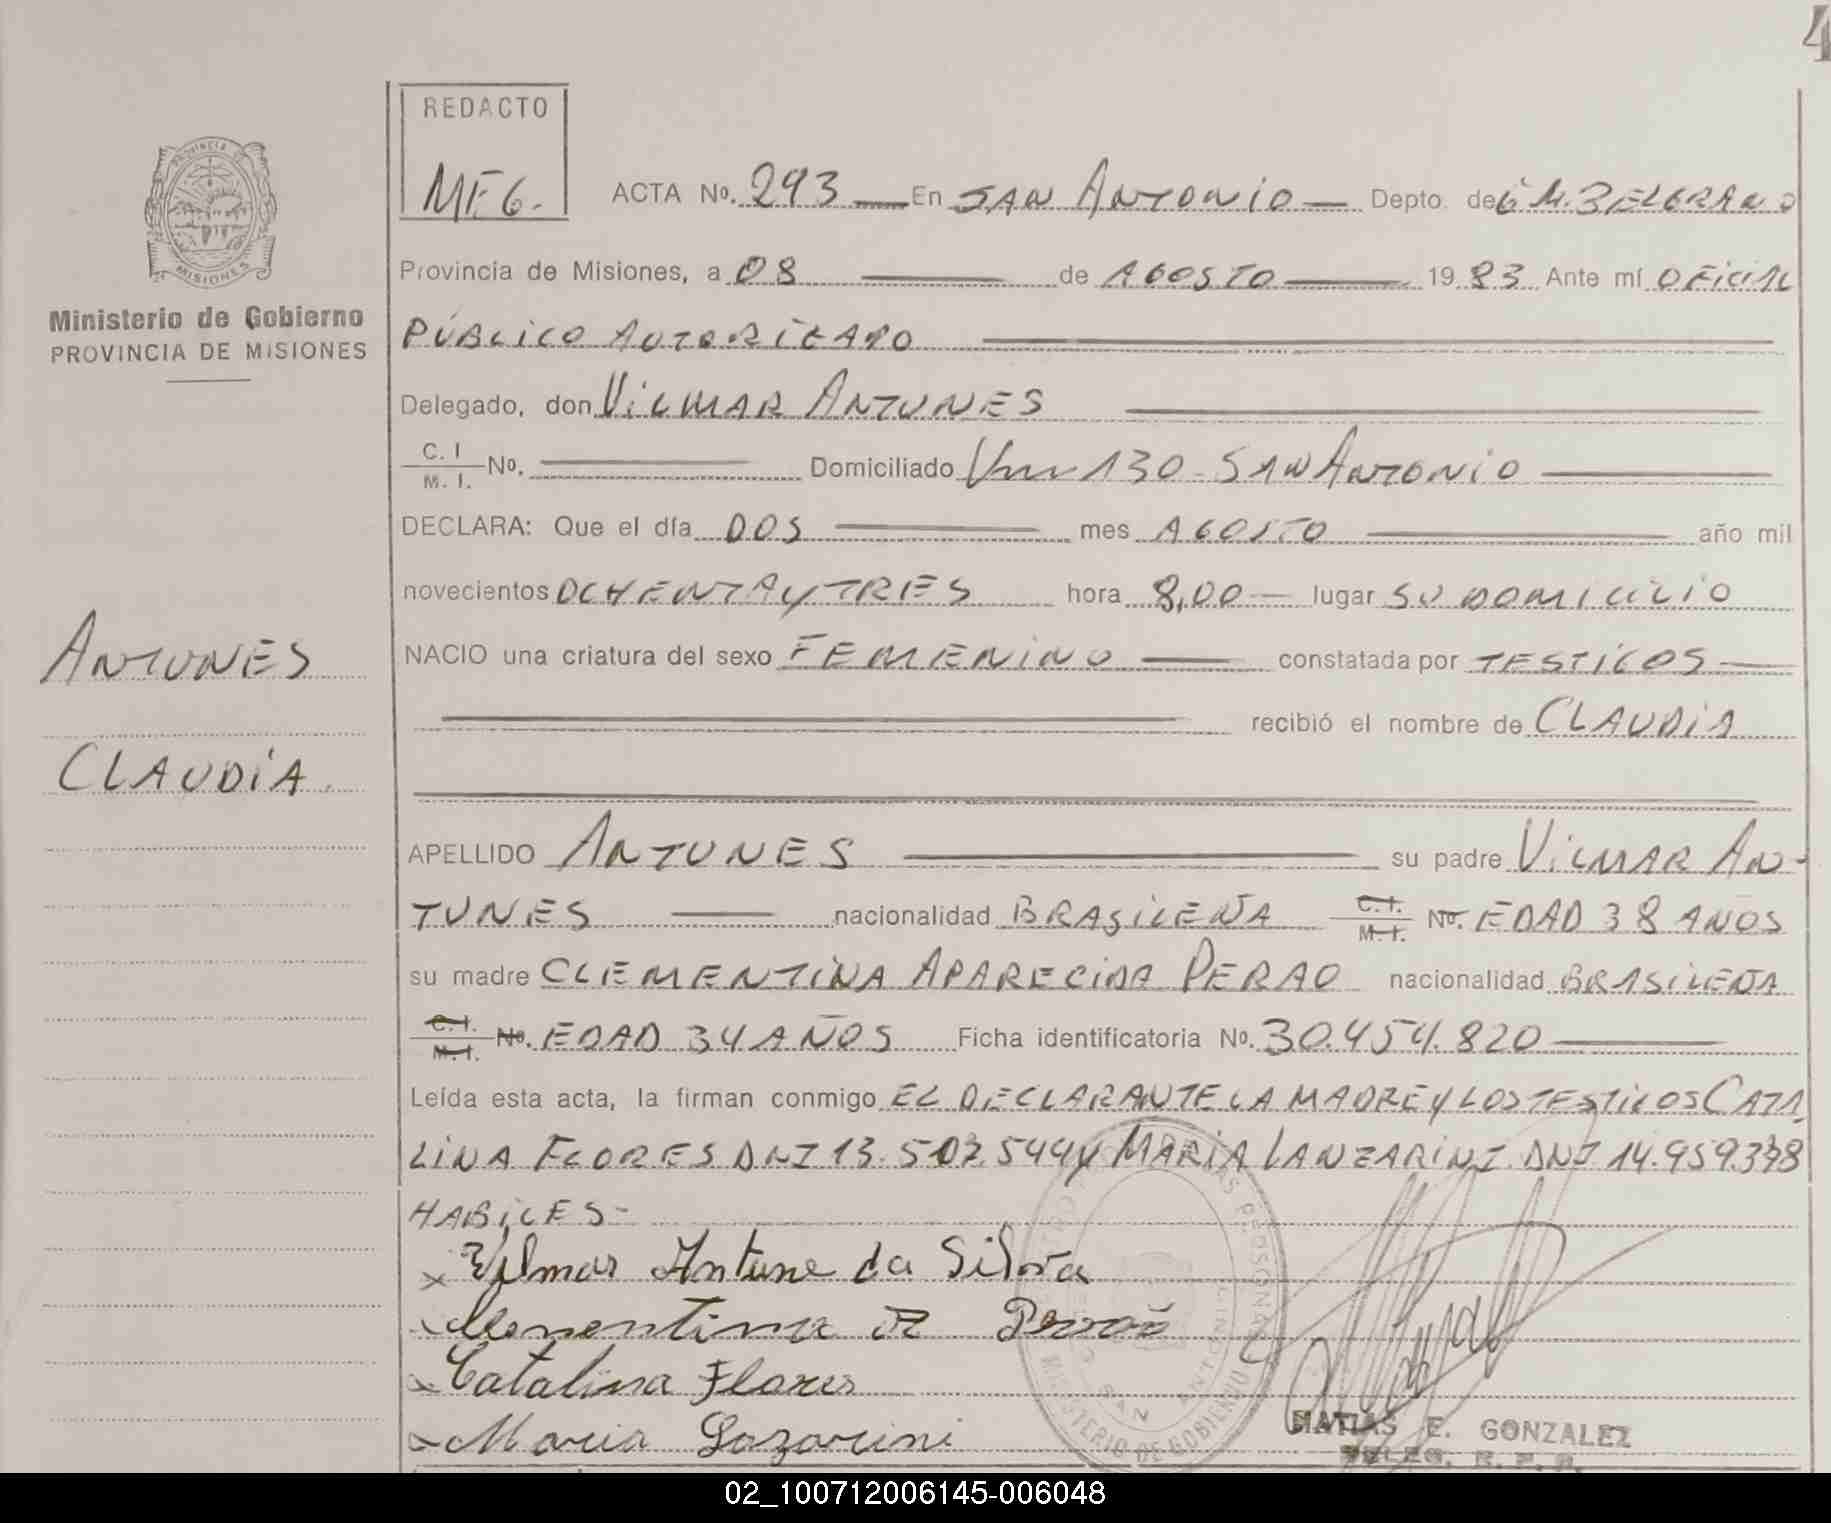 4
REDACTO
MEG.
ACTA Nº. 293 En SAN ANTONIO Depto. de G M. BELGRANO
PROVINCIA DE MISIONES
Ministerio de Gobierno
PROVINCIA DE MISIONES
Provincia de Misiones, a 08 de AGOSTO 1983 Ante mí OFICIAL
PÚBLICO AUTORIZADO
Delegado, don VILMAR ANTUNES
C. I. / M. I. Nº. Domiciliado Km 130 - SAN ANTONIO
DECLARA: Que el día DOS mes AGOSTO año mil
novecientos OCHENTA y TRES hora 8,00 lugar SU DOMICILIO
ANTUNES
NACIO una criatura del sexo FEMENINO constatada por TESTIGOS
recibió el nombre de CLAUDIA
CLAUDIA.
APELLIDO ANTUNES su padre VILMAR AN-
TUNES nacionalidad BRASILEÑA C. I. / M. I. Nº. EDAD 38 AÑOS
su madre CLEMENTINA APARECIDA PERAO nacionalidad BRASILEÑA
C. I. / M. I. Nº. EDAD 34 AÑOS Ficha identificatoria Nº. 30.454.820
Leída esta acta, la firman conmigo EL DECLARANTE LA MADRE y LOS TESTIGOS CATA
LINA FLORES DNI 13.507.544 y MARIA LANZARINI DNI 14.959.378
HABILES-
x Vilmar Antune da Silva
Clementina A Perrão
x Catalina Flores
x Maria Lazarini
SAN ANTONIO
MINISTERIO DE GOBIERNO
MATIAS E. GONZALEZ
DELEG. R. P. P.
02_100712006145-006048